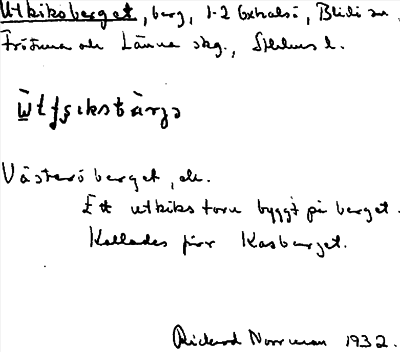 Utkiksberget, berg, 1-2 Gxtralsö, Blidö sn,
Frötuna och Länna skg., Sthlms l.
Västerö berget, el.
Ett utkikstorn byggt på berget.
Kallades förr Kasberget.
Rickard Norrman 1932.